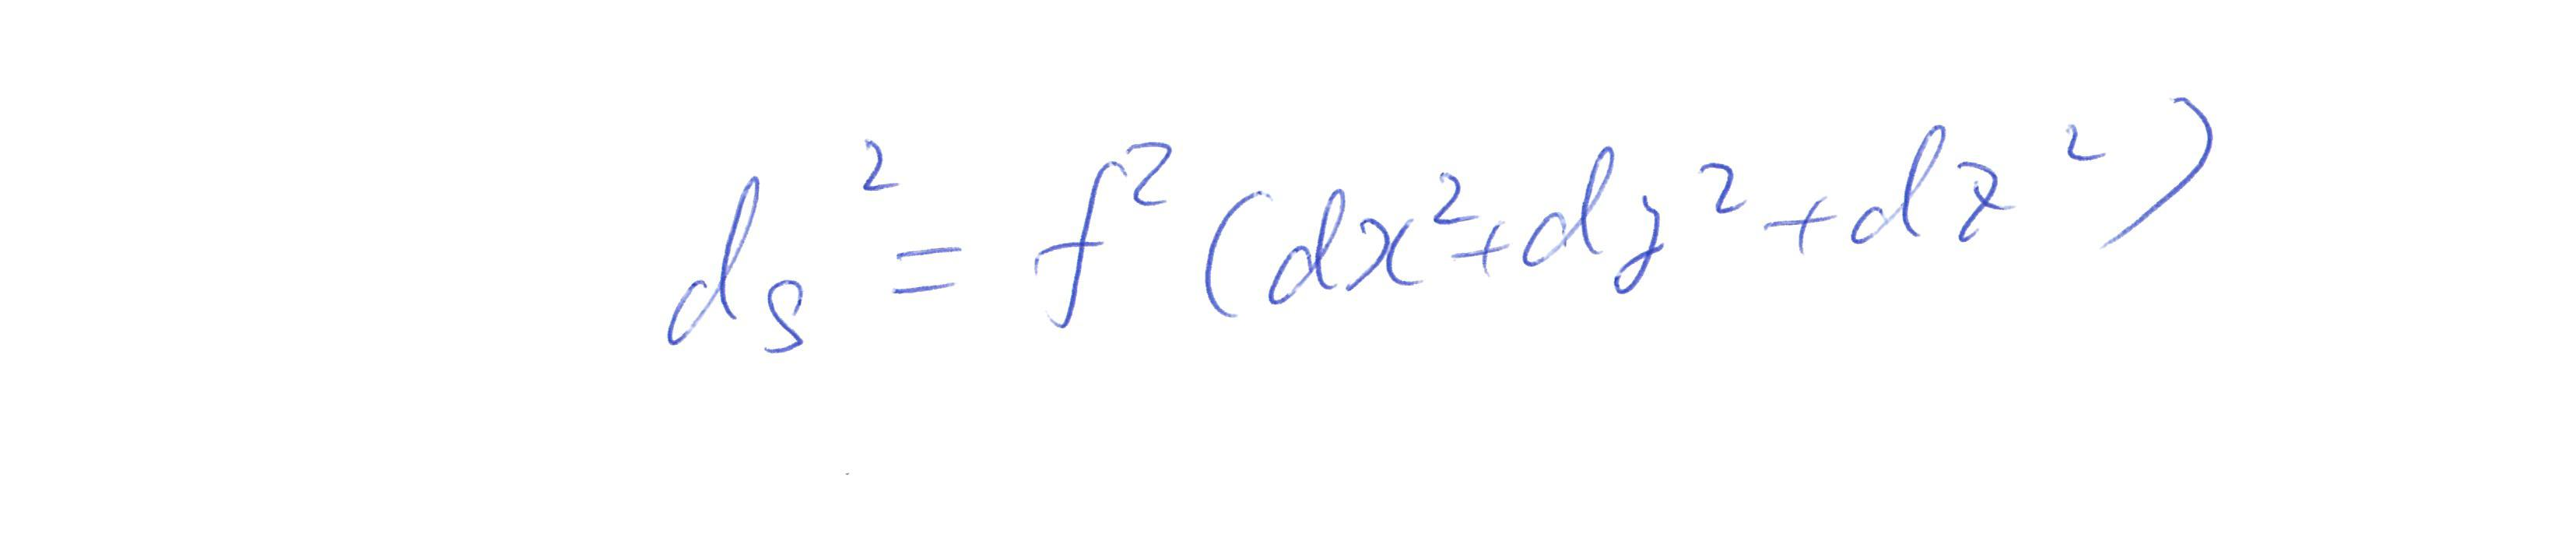 ds² = f² (dx²+dy²+dz²)